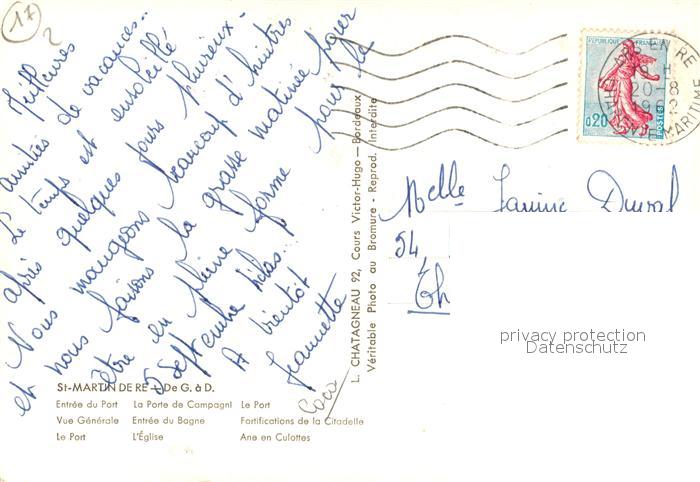 17
2
Meilleures
amitiés de vacances...
Le temps est ensoleillé
après quelques jours pluvieux.
Nous mangeons beaucoup d'huîtres
et nous faisons la grasse matinée pour
être en pleine forme pour le
5 septembre hélas...
A bientôt
Jeannette
Coco
St-MARTIN DE RE — De G. à D.
Entrée du Port La Porte de Campagnl Le Port
Vue Générale Entrée du Bagne Fortifications de la Citadelle
Le Port L'Église Ane en Culottes
L. CHATAGNEAU 92, Cours Victor-Hugo — Bordeaux
Véritable Photo au Bromure - Reprod. Interdite
REPUBLIQUE FRANÇAISE
0,20
POSTES
EN RE
20-8
MARITIME
Melle Janine Duval
54,
privacy protection
Datenschutz